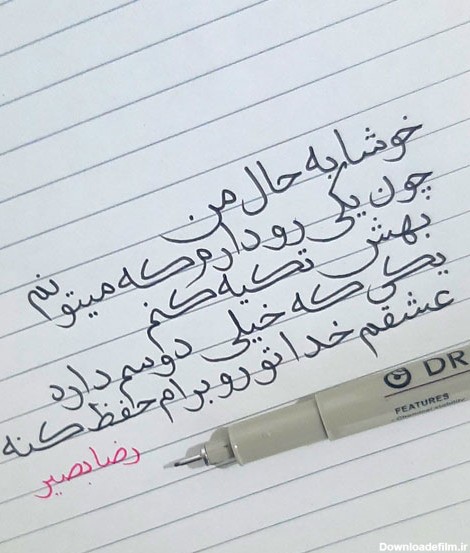 خوشا به حال من
چون یکی رو دارم که میتونم
بهش تکیه کنم
یکی که خیلی دوسم داره
عشقم خدا تو رو برام حفظ کنه
رضا بصیر
DR
FEATURES
Downloadefilm.ir